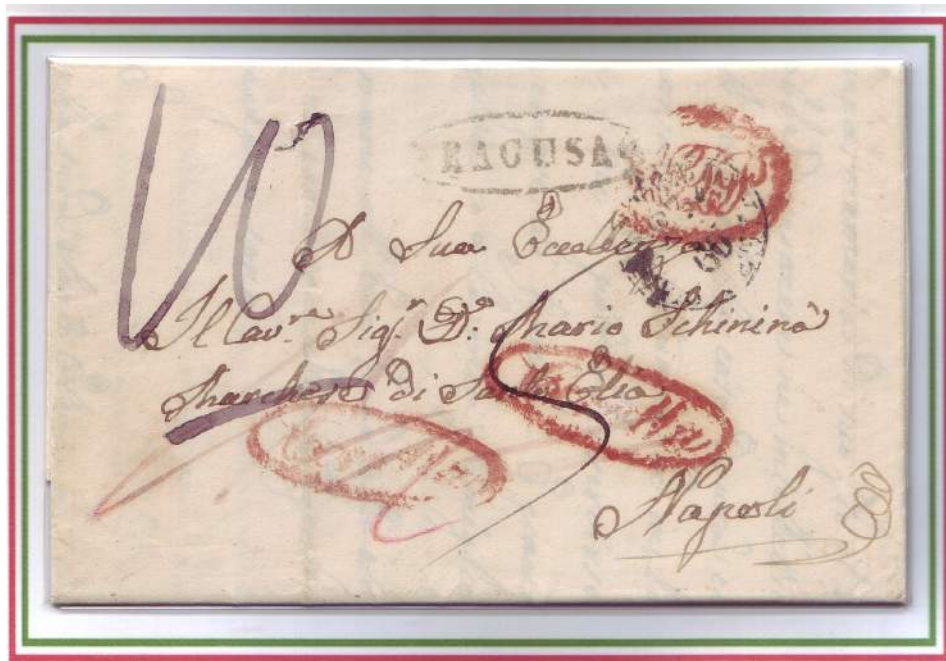 10
RAGUSA
A Sua Eccellenza
Il Cav.re Sig.r D.n Mario Schininà
Marchese di Sant' Elia
Napoli